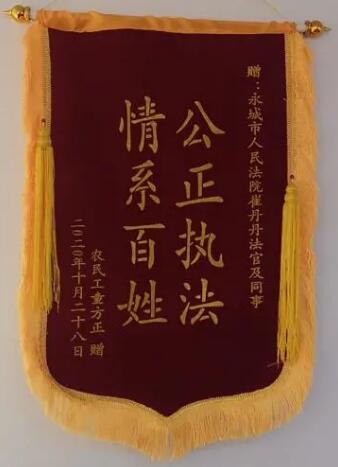 赠：永城市人民法院崔丹丹法官及同事
公正执法
情系百姓
农民工重方正 赠
二〇二〇年十月二十八日